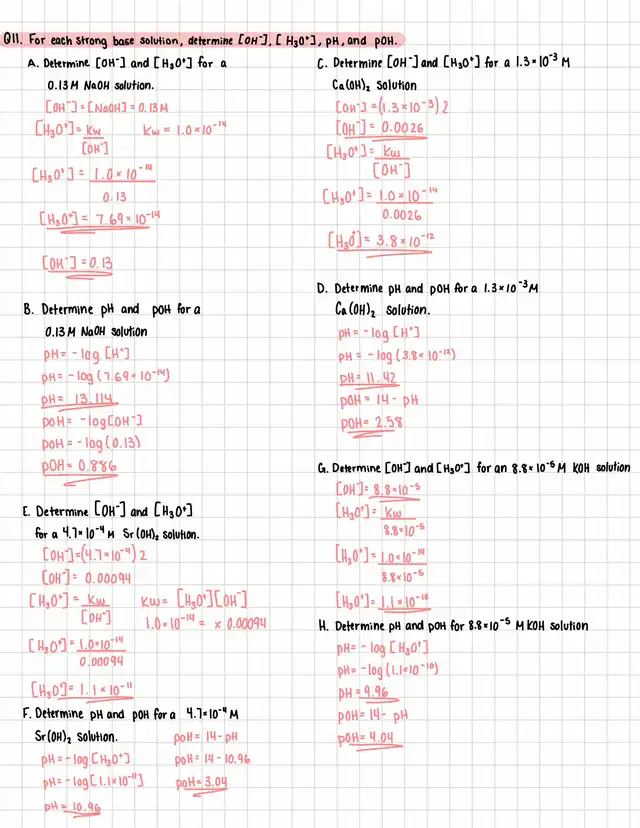 Q11. For each strong base solution, determine [OH⁻], [H₃O⁺], pH, and pOH.
A. Determine [OH⁻] and [H₃O⁺] for a
0.13 M NaOH solution.
[OH⁻] = [NaOH] = 0.13 M
[H₃O⁺] = Kw / [OH⁻]   Kw = 1.0 × 10⁻¹⁴
[H₃O⁺] = 1.0 × 10⁻¹⁴ / 0.13
[H₃O⁺] = 7.69 × 10⁻¹⁴
[OH⁻] = 0.13
B. Determine pH and pOH for a
0.13 M NaOH solution
pH = -log [H⁺]
pH = -log (7.69 × 10⁻¹⁴)
pH = 13.114
pOH = -log[OH⁻]
pOH = -log (0.13)
pOH = 0.886
E. Determine [OH⁻] and [H₃O⁺]
for a 4.7 × 10⁻⁴ M Sr(OH)₂ solution.
[OH⁻] = (4.7 × 10⁻⁴) 2
[OH⁻] = 0.00094
[H₃O⁺] = Kw / [OH⁻]   Kw = [H₃O⁺][OH⁻]
1.0 × 10⁻¹⁴ = x 0.00094
[H₃O⁺] = 1.0 × 10⁻¹⁴ / 0.00094
[H₃O⁺] = 1.1 × 10⁻¹¹
F. Determine pH and pOH for a 4.7 × 10⁻⁴ M
Sr(OH)₂ solution.
pH = -log [H₃O⁺]
pH = -log [1.1 × 10⁻¹¹]
pH = 10.96
pOH = 14 - pH
pOH = 14 - 10.96
pOH = 3.04
C. Determine [OH⁻] and [H₃O⁺] for a 1.3 × 10⁻³ M
Ca(OH)₂ Solution
[OH⁻] = (1.3 × 10⁻³) 2
[OH⁻] = 0.0026
[H₃O⁺] = Kw / [OH⁻]
[H₃O⁺] = 1.0 × 10⁻¹⁴ / 0.0026
[H₃O⁺] = 3.8 × 10⁻¹²
D. Determine pH and pOH for a 1.3 × 10⁻³ M
Ca(OH)₂ solution.
pH = -log [H⁺]
pH = -log (3.8 × 10⁻¹²)
pH = 11.42
pOH = 14 - pH
pOH = 2.58
G. Determine [OH⁻] and [H₃O⁺] for an 8.8 × 10⁻⁵ M KOH solution
[OH⁻] = 8.8 × 10⁻⁵
[H₃O⁺] = Kw / 8.8 × 10⁻⁵
[H₃O⁺] = 1.0 × 10⁻¹⁴ / 8.8 × 10⁻⁵
[H₃O⁺] = 1.1 × 10⁻¹⁰
H. Determine pH and pOH for 8.8 × 10⁻⁵ M KOH solution
pH = -log [H₃O⁺]
pH = -log (1.1 × 10⁻¹⁰)
pH = 9.96
pOH = 14 - pH
pOH = 4.04